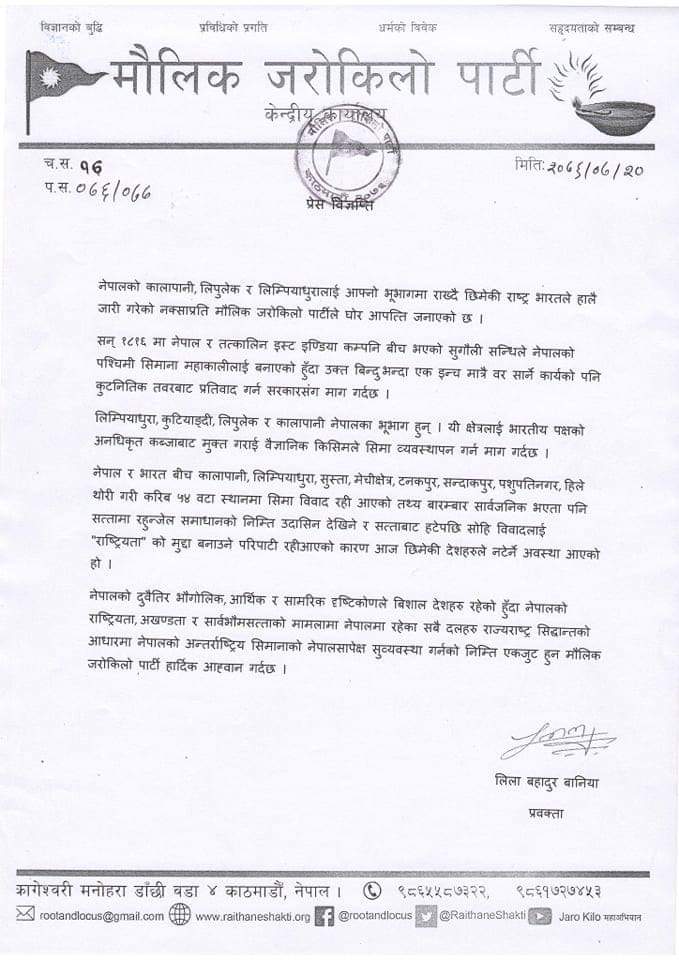 विज्ञानको बुद्धि प्रविधिको प्रगति धर्मको विवेक सहृदयताको सम्बन्ध
मौलिक जरोकिलो पार्टी
केन्द्रीय कार्यालय
मौलिक जरोकिलो पार्टी
काठमाडौं २०७२
च.स. १६
मिति: २०७६/०७/२०
प.स. ०७६/०७७
प्रेस विज्ञप्ति
नेपालको कालापानी, लिपुलेक र लिम्पियाधुरालाई आफ्नो भूभागमा राख्दै छिमेकी राष्ट्र भारतले हालै
जारी गरेको नक्साप्रति मौलिक जरोकिलो पार्टीले घोर आपत्ति जनाएको छ ।
सन् १८१६ मा नेपाल र तत्कालिन इस्ट इण्डिया कम्पनि बीच भएको सुगौली सन्धिले नेपालको
पश्चिमी सिमाना महाकालीलाई बनाएको हुँदा उक्त बिन्दु भन्दा एक इन्च मात्रै वर सार्ने कार्यको पनि
कुटनितिक तवरबाट प्रतिवाद गर्न सरकारसंग माग गर्दछ ।
लिम्पियाधुरा, कुटियाङ्दी, लिपुलेक र कालापानी नेपालका भूभाग हुन् । यी क्षेत्रलाई भारतीय पक्षको
अनधिकृत कब्जाबाट मुक्त गराई वैज्ञानिक किसिमले सिमा व्यवस्थापन गर्न माग गर्दछ ।
नेपाल र भारत बीच कालापानी, लिम्पियाधुरा, सुस्ता, मेचीक्षेत्र, टनकपुर, सन्दाकपुर, पशुपतिनगर, हिले
थोरी गरी करिब ५४ वटा स्थानमा सिमा विवाद रही आएको तथ्य बारम्बार सार्वजनिक भएता पनि
सत्तामा रहुन्जेल समाधानको निम्ति उदासिन देखिने र सत्ताबाट हटेपछि सोहि विवादलाई
"राष्ट्रियता" को मुद्दा बनाउने परिपाटी रहीआएको कारण आज छिमेकी देशहरुले नटेर्ने अवस्था आएको
हो ।
नेपालको दुवैतिर भौगोलिक, आर्थिक र सामरिक दृष्टिकोणले बिशाल देशहरु रहेको हुँदा नेपालको
राष्ट्रियता, अखण्डता र सार्वभौमसत्ताको मामलामा नेपालमा रहेका सबै दलहरु राज्यराष्ट्र सिद्धान्तको
आधारमा नेपालको अन्तर्राष्ट्रिय सिमानाको नेपालसापेक्ष सुव्यवस्था गर्नको निम्ति एकजुट हुन मौलिक
जरोकिलो पार्टी हार्दिक आह्वान गर्दछ ।
लिला बहादुर बानिया
प्रवक्ता
कागेश्वरी मनोहरा डाँछी वडा ४ काठमाडौं, नेपाल । ९८६५५८७३२२, ९८६१७२७४५३
rootandlocus@gmail.com www.raithaneshakti.org @rootandlocus @RaithaneShakti Jaro Kilo महाअभियान